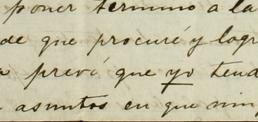 poner termino a la
de que procuré y logr
prevé que yo tend
asuntos en que nin